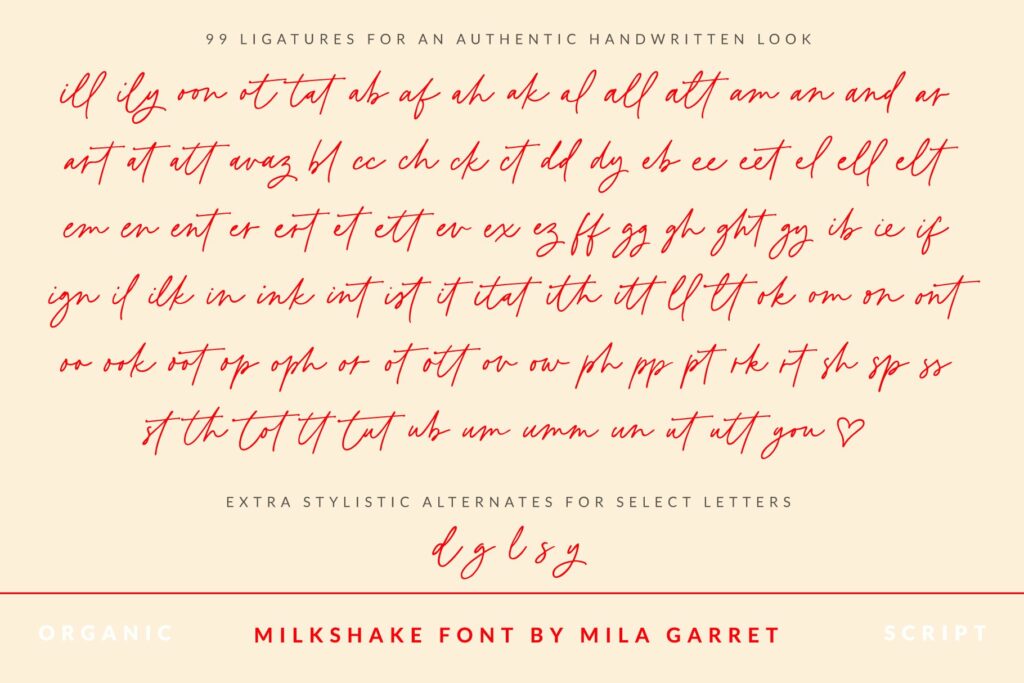 99 LIGATURES FOR AN AUTHENTIC HANDWRITTEN LOOK
ill ily oon ot tat ab af ah ak al all alt am an and ar
art at att avaz bl cc ch ck ct dd dy eb ee eet el ell elt
em en ent er ert et ett ev ex ez ff gg gh ght gy ib ie if
ign il ilk in ink int ist it itat ith itt ll lt ok om on ont
oo ook oot op oph or ot ott ov ow ph pp pt rk rt sh sp ss
st th tot tt tut ub um umm un ut utt you ♡
EXTRA STYLISTIC ALTERNATES FOR SELECT LETTERS
d g l s y
ORGANIC MILKSHAKE FONT BY MILA GARRET SCRIPT